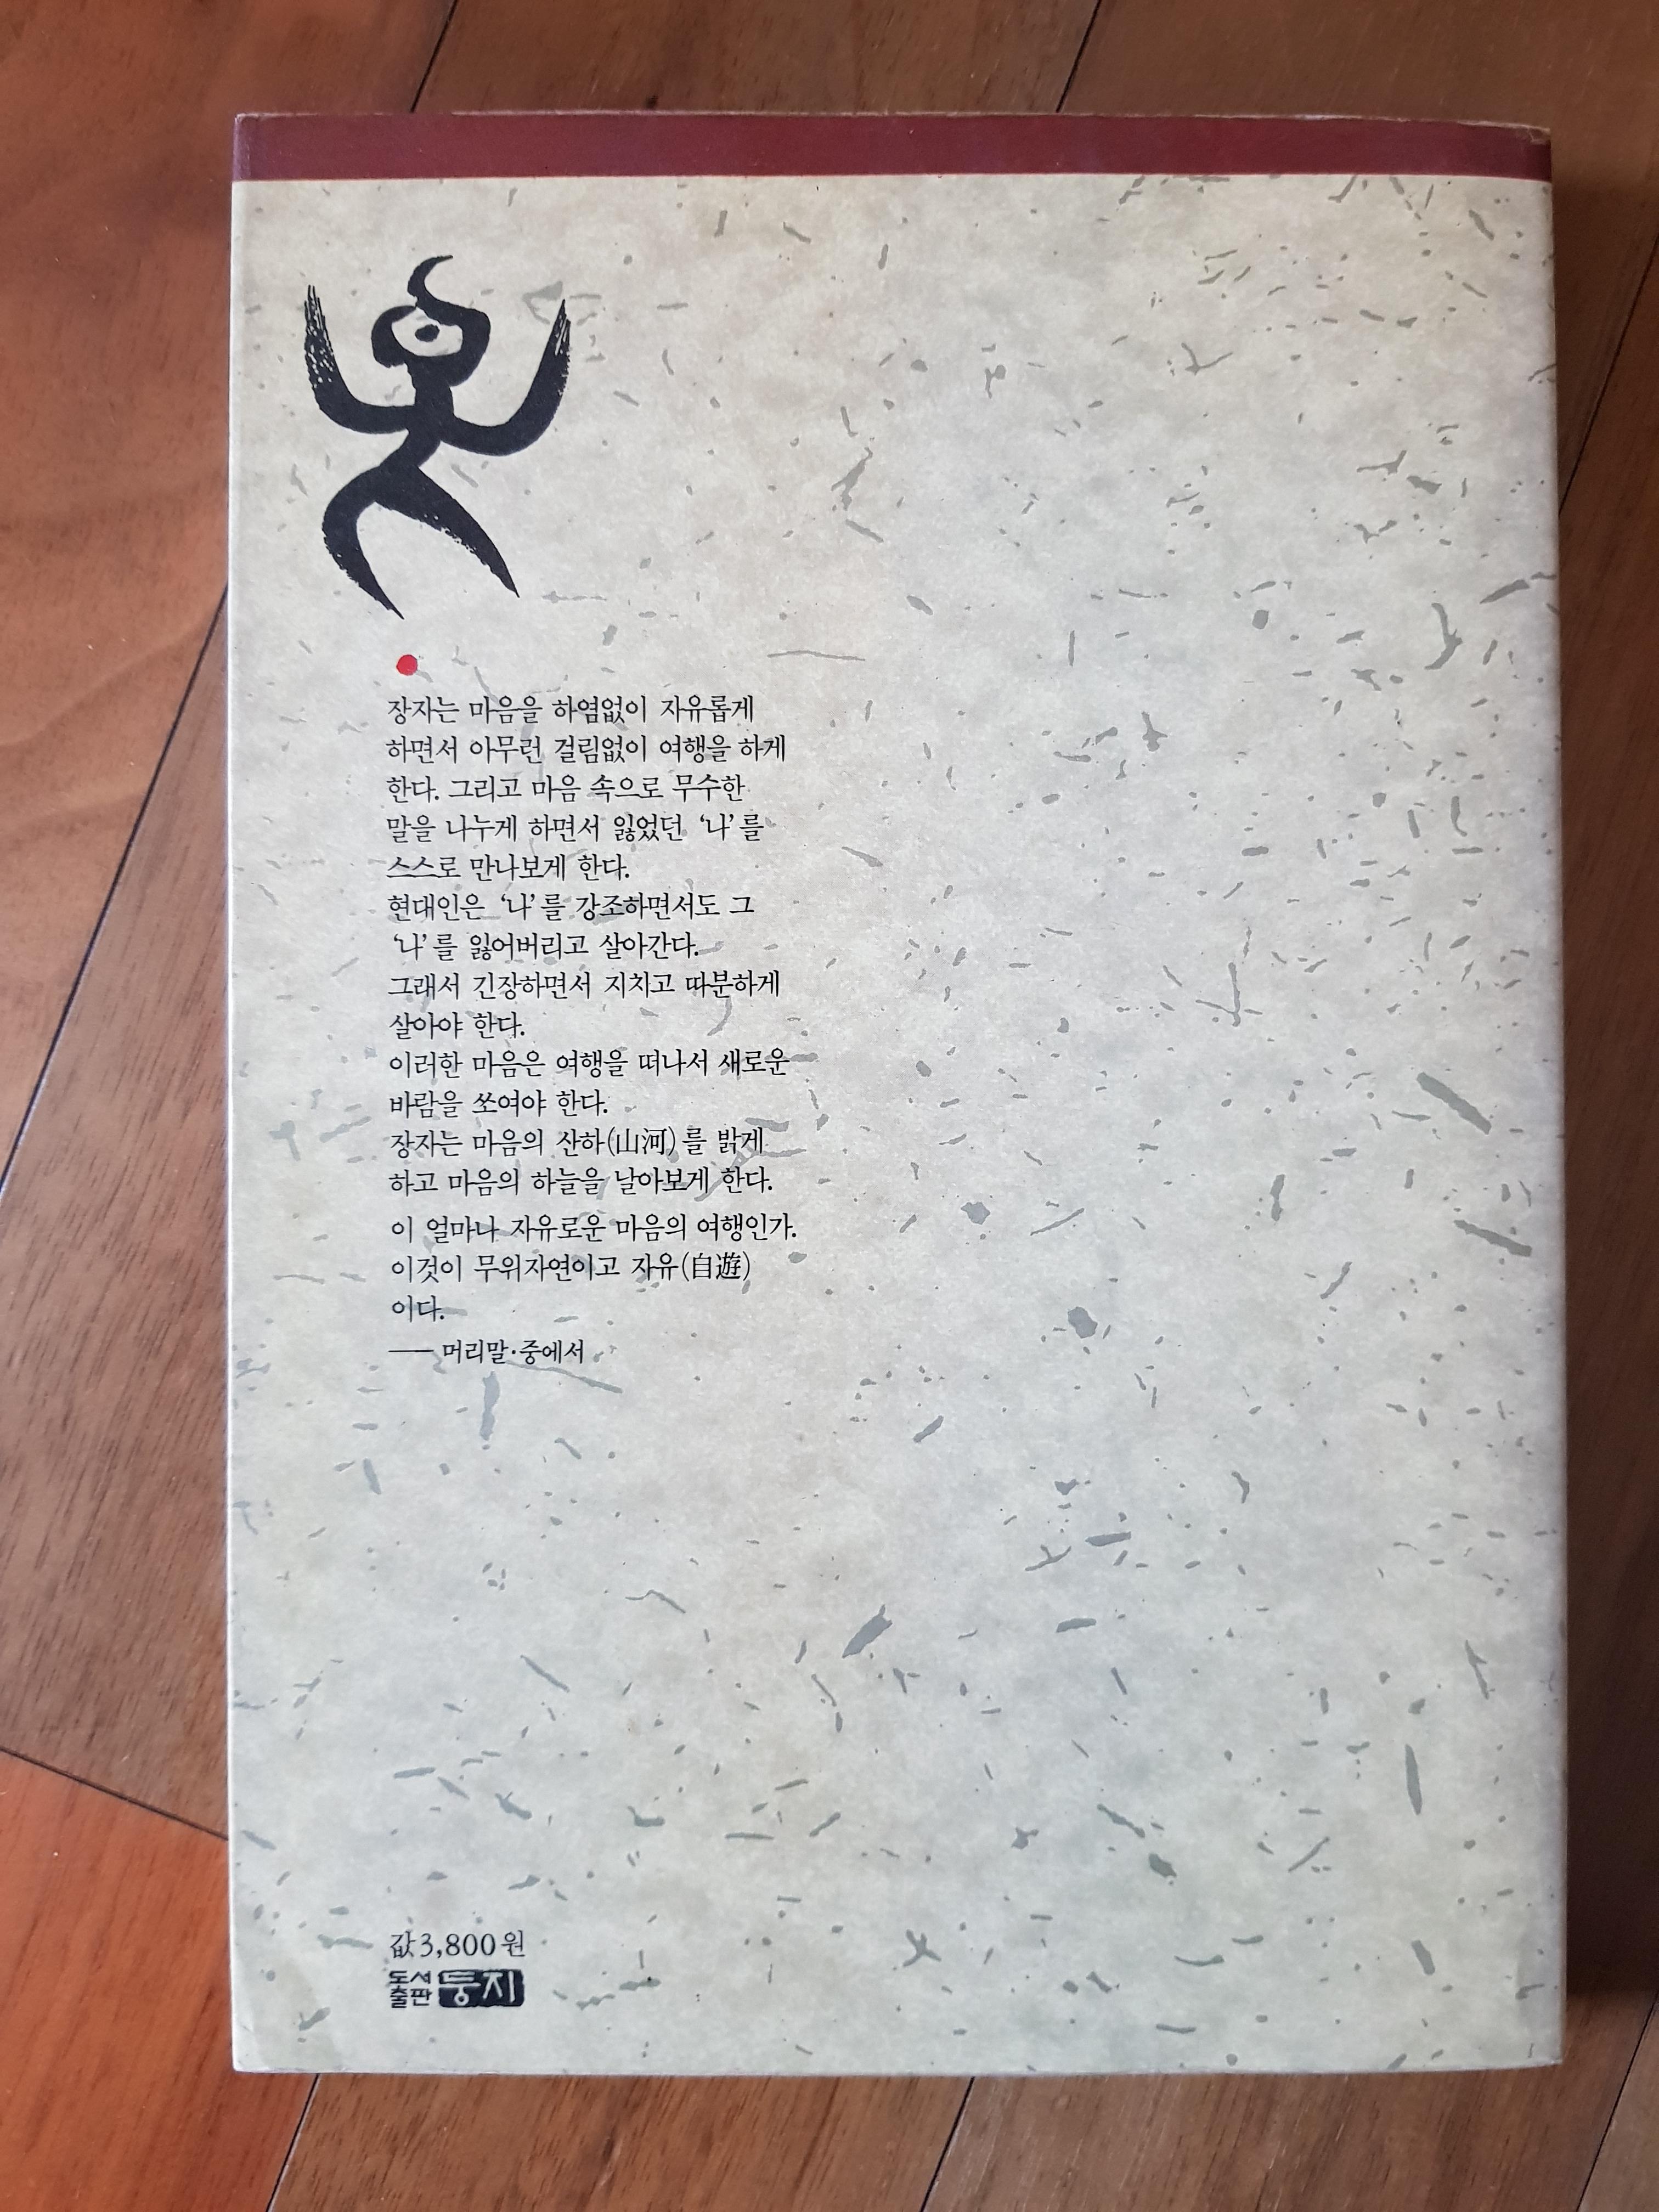 장자는 마음을 하염없이 자유롭게
하면서 아무런 걸림없이 여행을 하게
한다. 그리고 마음 속으로 무수한
말을 나누게 하면서 잃었던 ‘나’를
스스로 만나보게 한다.
현대인은 ‘나’를 강조하면서도 그
‘나’를 잃어버리고 살아간다.
그래서 긴장하면서 지치고 따분하게
살아야 한다.
이러한 마음은 여행을 떠나서 새로운
바람을 쏘여야 한다.
장자는 마음의 산하(山河)를 밝게
하고 마음의 하늘을 날아보게 한다.
이 얼마나 자유로운 마음의 여행인가.
이것이 무위자연이고 자유(自遊)
이다.
── 머리말·중에서
값 3,800원
도서출판 둥지